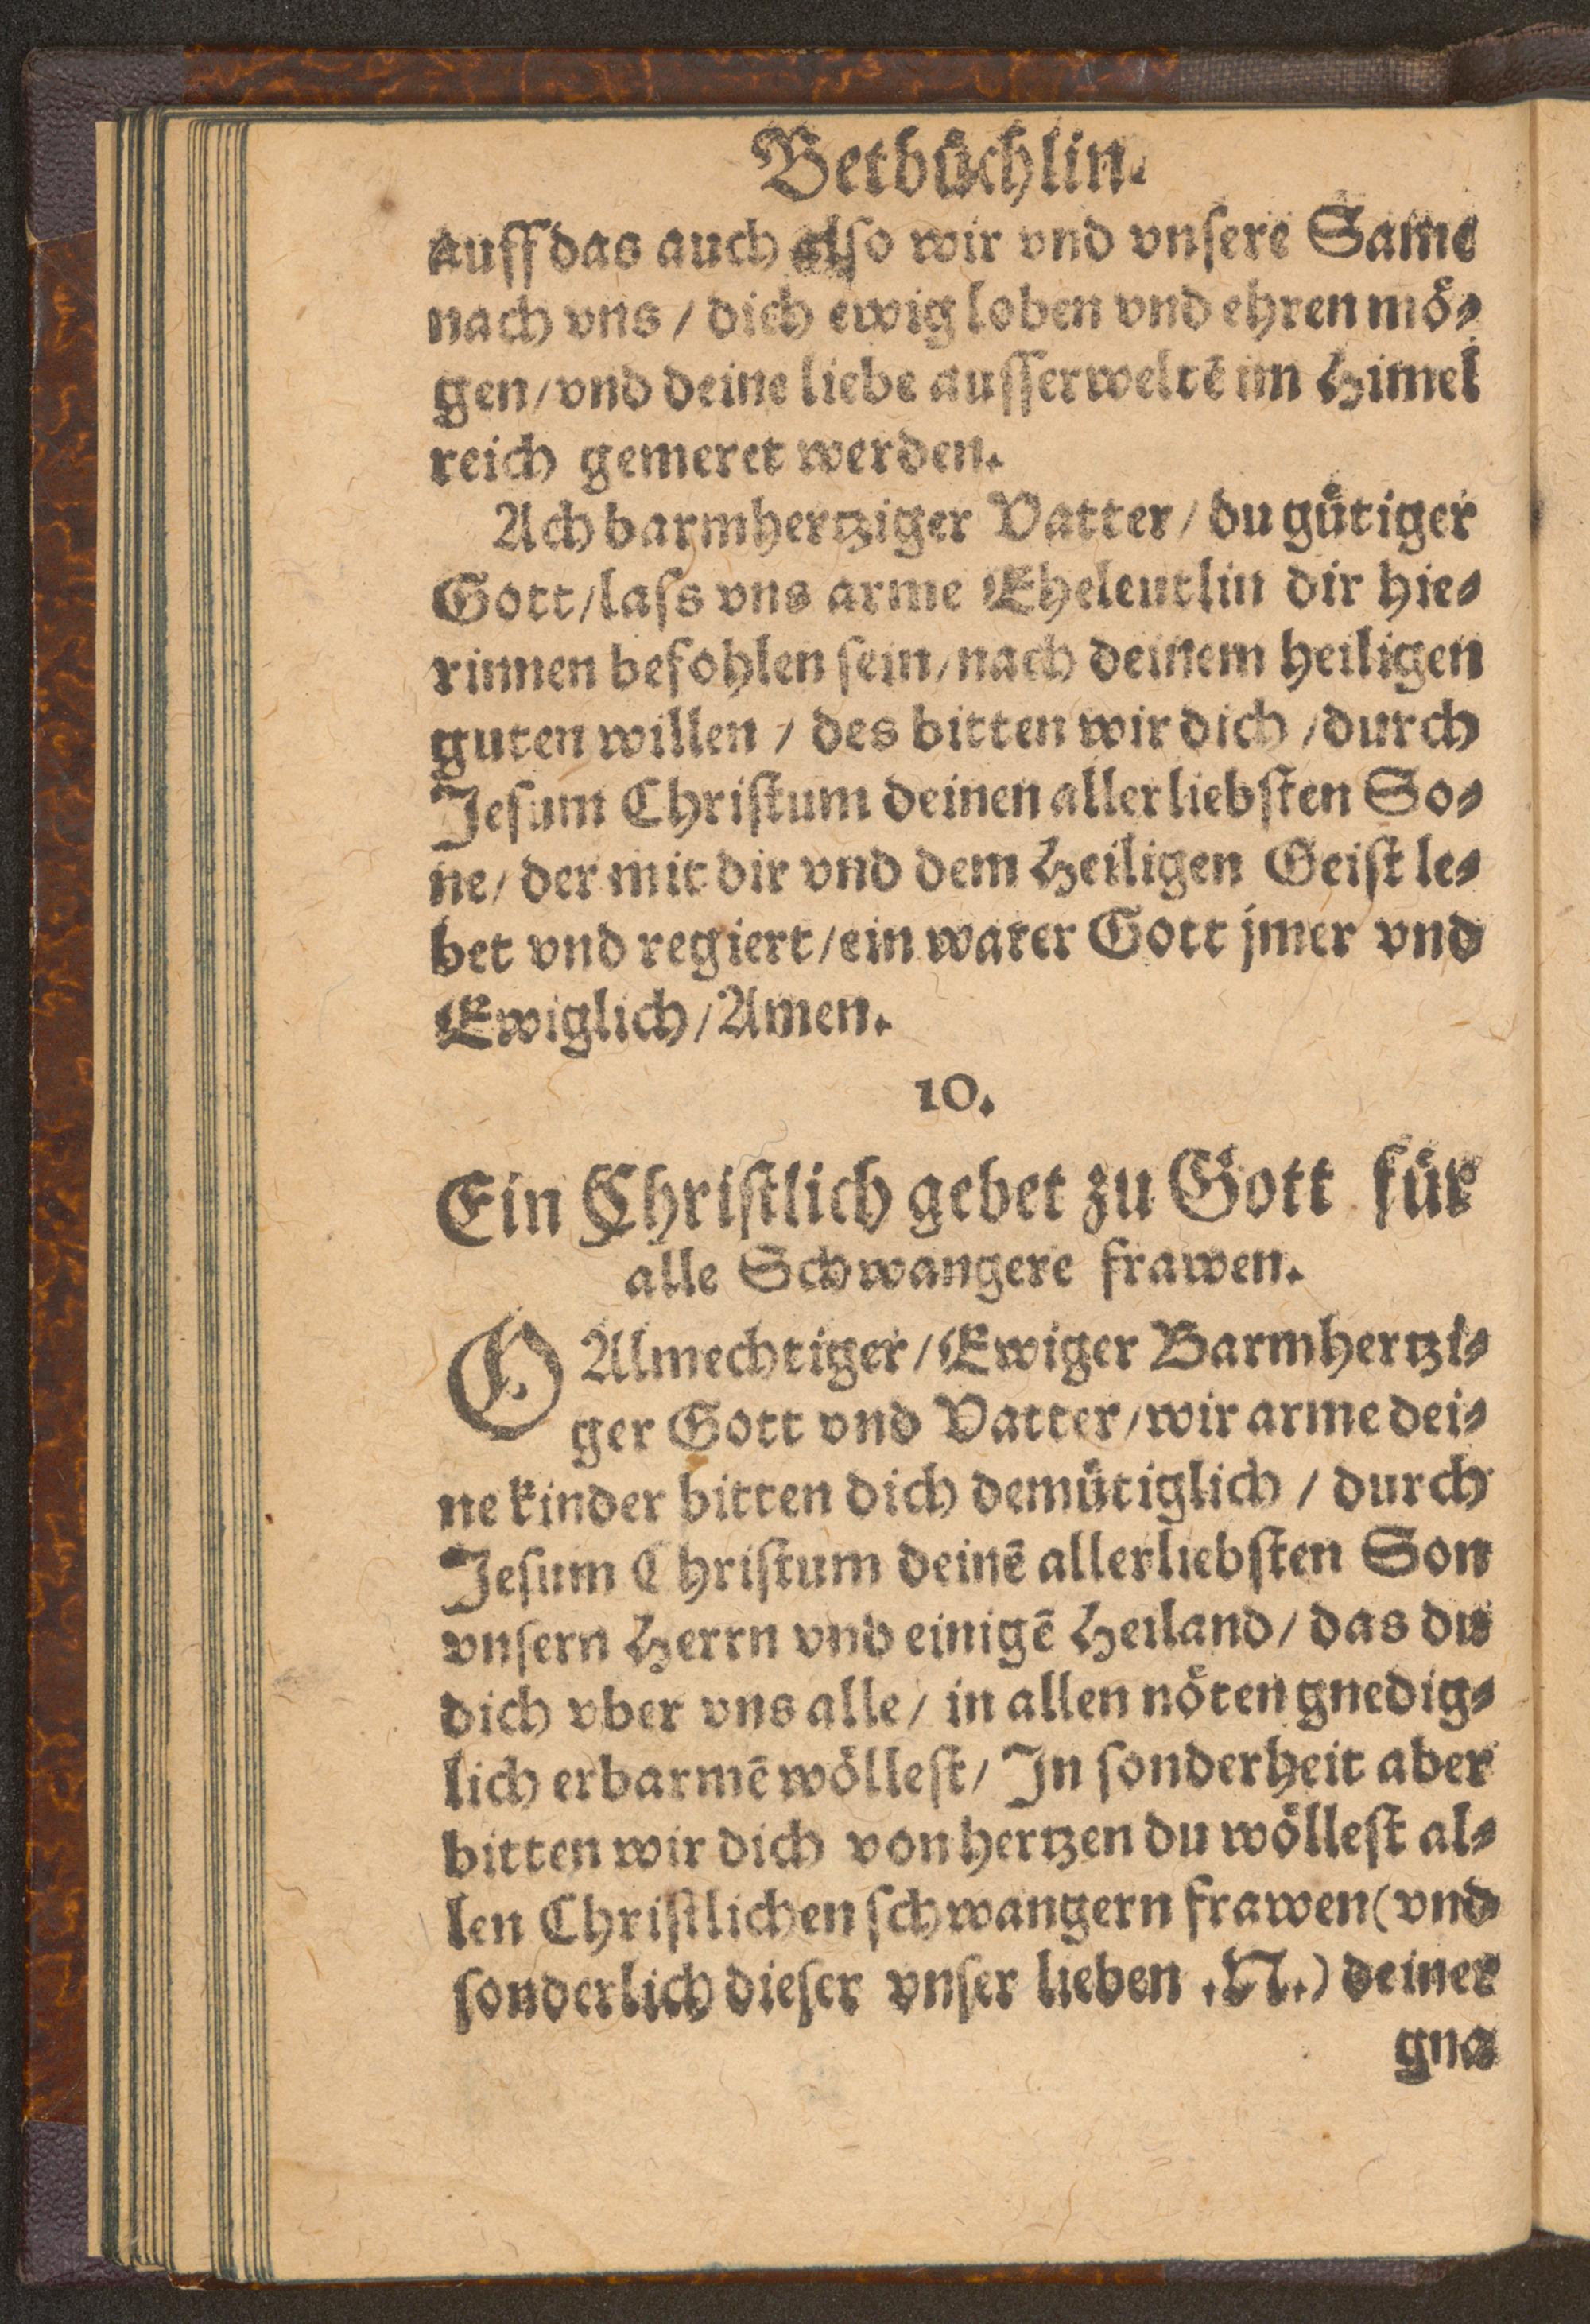 Betbüchlin.
auff das auch also wir vnd vnsere Same
nach vns / dich ewig loben vnd ehren mö⸗
gen / vnd deine liebe ausserweltē im Himel
reich gemeret werden.
Ach barmhertziger Vatter / du gütiger
Gott / lass vns arme Eheleutlin dir hie⸗
rinnen befohlen sein / nach deinem heiligen
guten willen / des bitten wir dich / durch
Jesum Christum deinen allerliebsten So⸗
ne / der mit dir vnd dem Heiligen Geist le⸗
bet vnd regiert / ein warer Gott jmer vnd
Ewiglich / Amen.
10.
Ein Christlich gebet zu Gott für
alle Schwangere frawen.
O Almechtiger / Ewiger Barmhertzi⸗
ger Gott vnd Vatter / wir arme dei⸗
ne kinder bitten dich demütiglich / durch
Jesum Christum deinē allerliebsten Son
vnsern Herrn vnd einigē Heiland / das du
dich vber vns alle / in allen nöten gnedig⸗
lich erbarmē wöllest / In sonderheit aber
bitten wir dich von hertzen du wöllest al⸗
len Christlichen schwangern frawen (vnd
sonderlich dieser vnser lieben .N.) deiner
gna